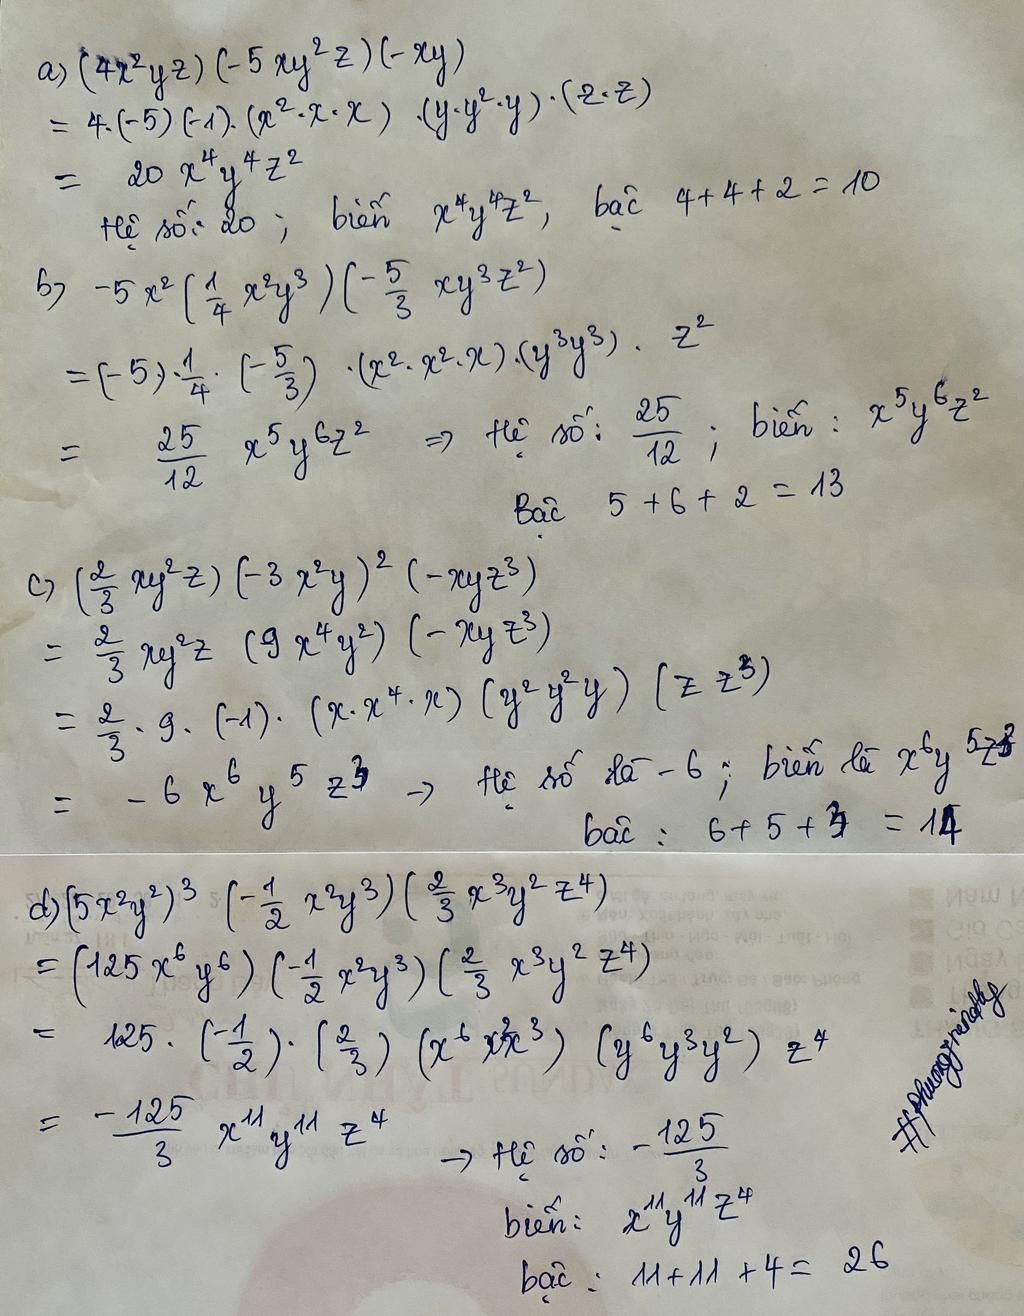 a) (4x²yz)(-5xy²z)(-xy)
= 4.(-5)(-1).(x².x.x).(y.y².y).(z.z)
= 20 x⁴y⁴z²
Hệ số: 20 ; biến x⁴y⁴z², bậc 4+4+2 = 10
b) -5x²(1/4 x²y³)(-5/3 xy³z²)
= (-5).1/4.(-5/3).(x².x².x).(y³y³).z²
= 25/12 x⁵y⁶z² => Hệ số: 25/12 ; biến: x⁵y⁶z²
Bậc 5+6+2 = 13
c) (2/3 xy²z)(-3x²y)²(-xyz³)
= 2/3 xy²z (9x⁴y²)(-xyz³)
= 2/3.9.(-1).(x.x⁴.x)(y²y²y)(z z³)
= -6x⁶y⁵z³ → Hệ số là -6 ; biến là x⁶y⁵z³
bậc : 6+5+3 = 14
d) (5x²y²)³(-1/2 x²y³)(2/3 x³y²z⁴)
= (125x⁶y⁶)(-1/2 x²y³)(2/3 x³y²z⁴)
= 125.(-1/2).(2/3)(x⁶x²x³)(y⁶y³y²)z⁴
= -125/3 x¹¹y¹¹z⁴ → Hệ số: -125/3
biến: x¹¹y¹¹z⁴
bậc : 11+11+4 = 26